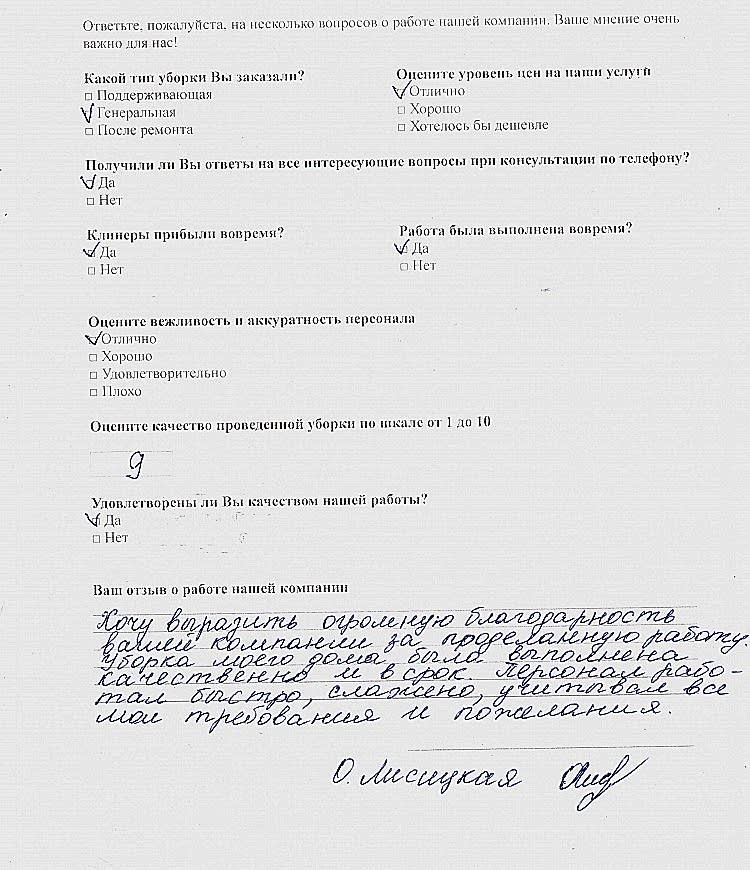 Ответьте, пожалуйста, на несколько вопросов о работе нашей компании. Ваше мнение очень
важно для нас!
Какой тип уборки Вы заказали?
□ Поддерживающая
☑ Генеральная
□ После ремонта
Оцените уровень цен на наши услуги
☑ Отлично
□ Хорошо
□ Хотелось бы дешевле
Получили ли Вы ответы на все интересующие вопросы при консультации по телефону?
☑ Да
□ Нет
Клинеры прибыли вовремя?
☑ Да
□ Нет
Работа была выполнена вовремя?
☑ Да
□ Нет
Оцените вежливость и аккуратность персонала
☑ Отлично
□ Хорошо
□ Удовлетворительно
□ Плохо
Оцените качество проведенной уборки по шкале от 1 до 10
9
Удовлетворены ли Вы качеством нашей работы?
☑ Да
□ Нет
Ваш отзыв о работе нашей компании
Хочу выразить огромную благодарность
вашей компании за проделанную работу.
Уборка моего дома была выполнена
качественно и в срок. Персонал рабо-
тал быстро, слажено, учитывал все
мои требования и пожелания.
О. Лисицкая